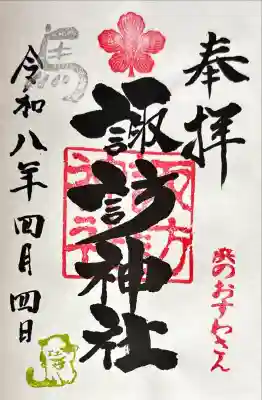 奉拝
浜のおすわさん
諏訪神社
諏訪神社
馬
令和八年四月四日